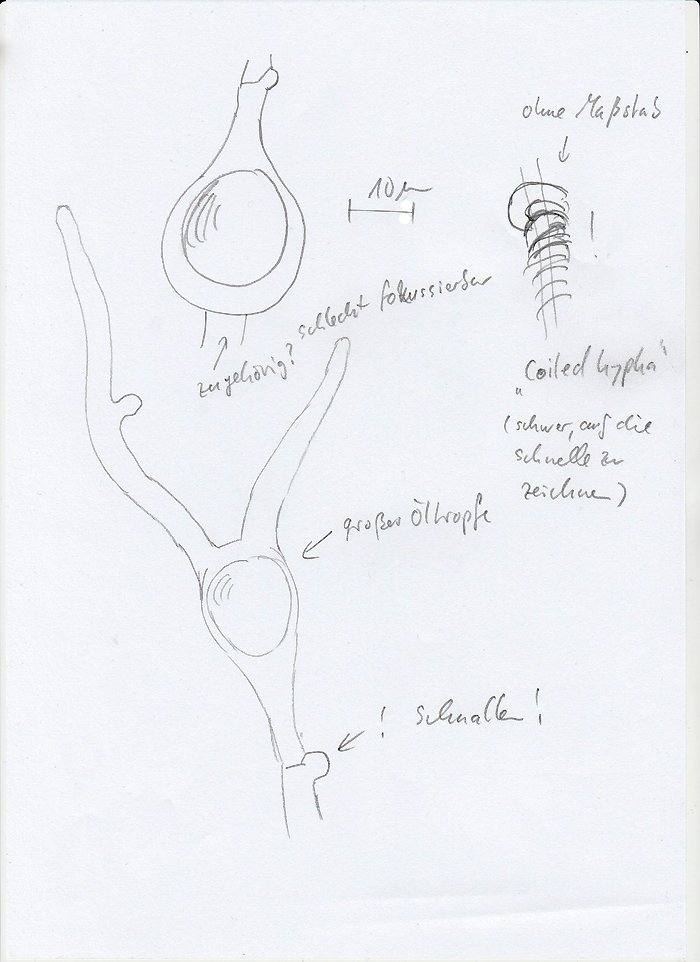 ohne Maßstab
10 µ
!
zugehörig? schlecht fokussierbar
"Coiled hypha"
(schwer, auf die
schnelle zu
zeichnen)
großer Öltropfe
! Schnallen!